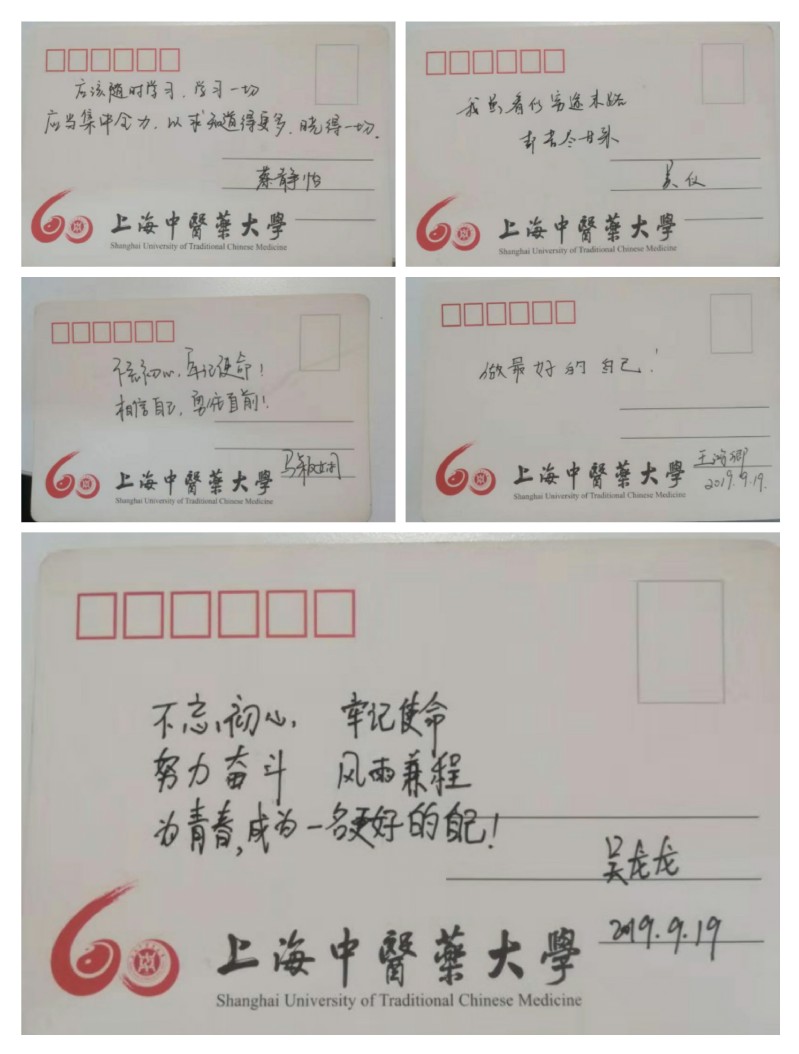 应该随时学习,学习一切
应当集中全力,以求知道得更多,晓得一切.
蔡静怡
60 上海中醫藥大學
Shanghai University of Traditional Chinese Medicine
我虽看似穷途末路
却苦尽甘来
吴仪
60 上海中醫藥大學
Shanghai University of Traditional Chinese Medicine
不忘初心,牢记使命!
相信自己,勇往直前!
马
60 上海中醫藥大學
Shanghai University of Traditional Chinese Medicine
做最好的自己!
王
2019.9.19.
60 上海中醫藥大學
Shanghai University of Traditional Chinese Medicine
不忘初心, 牢记使命
努力奋斗 风雨兼程
为青春,成为一名更好的自己!
吴龙龙
2019.9.19
60 上海中醫藥大學
Shanghai University of Traditional Chinese Medicine